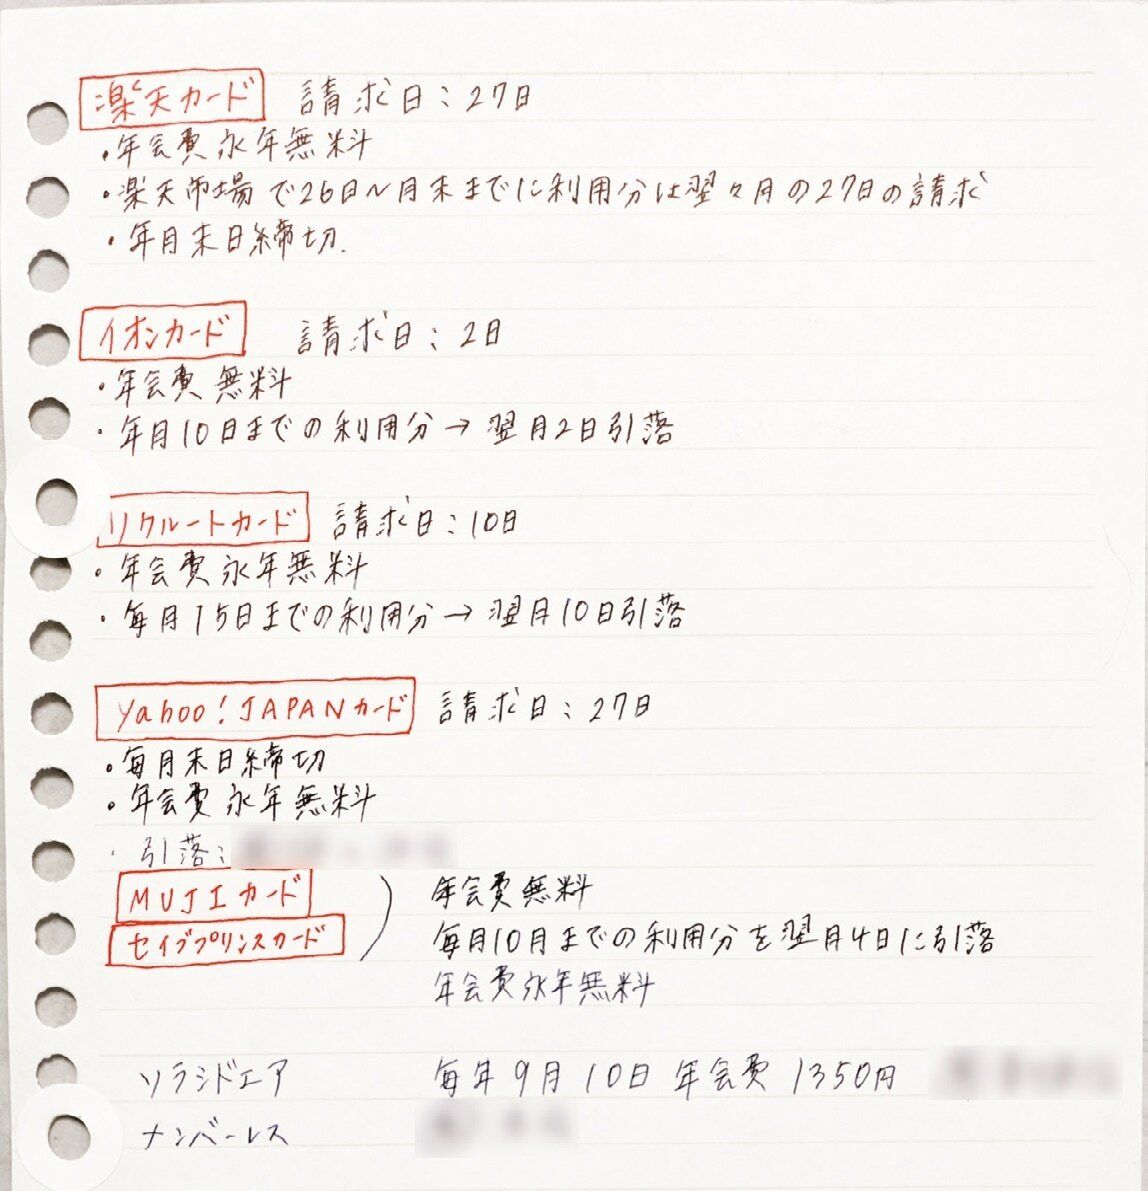 楽天カード 請求日：27日
・年会費永年無料
・楽天市場で26日～月末までに利用分は翌々月の27日の請求
・年月末日締切.
イオンカード 請求日：2日
・年会費無料
・年月10日までの利用分→翌月2日引落
リクルートカード 請求日：10日
・年会費永年無料
・毎月15日までの利用分→翌月10日引落
Yahoo!JAPANカード 請求日：27日
・毎月末日締切
・年会費永年無料
・引落：
MUJIカード 年会費無料
セイブプリンスカード ) 毎月10月までの利用分を翌月4日に引落
年会費永年無料
ソラシドエア 毎年9月10日 年会費 1350円
ナンバーレス